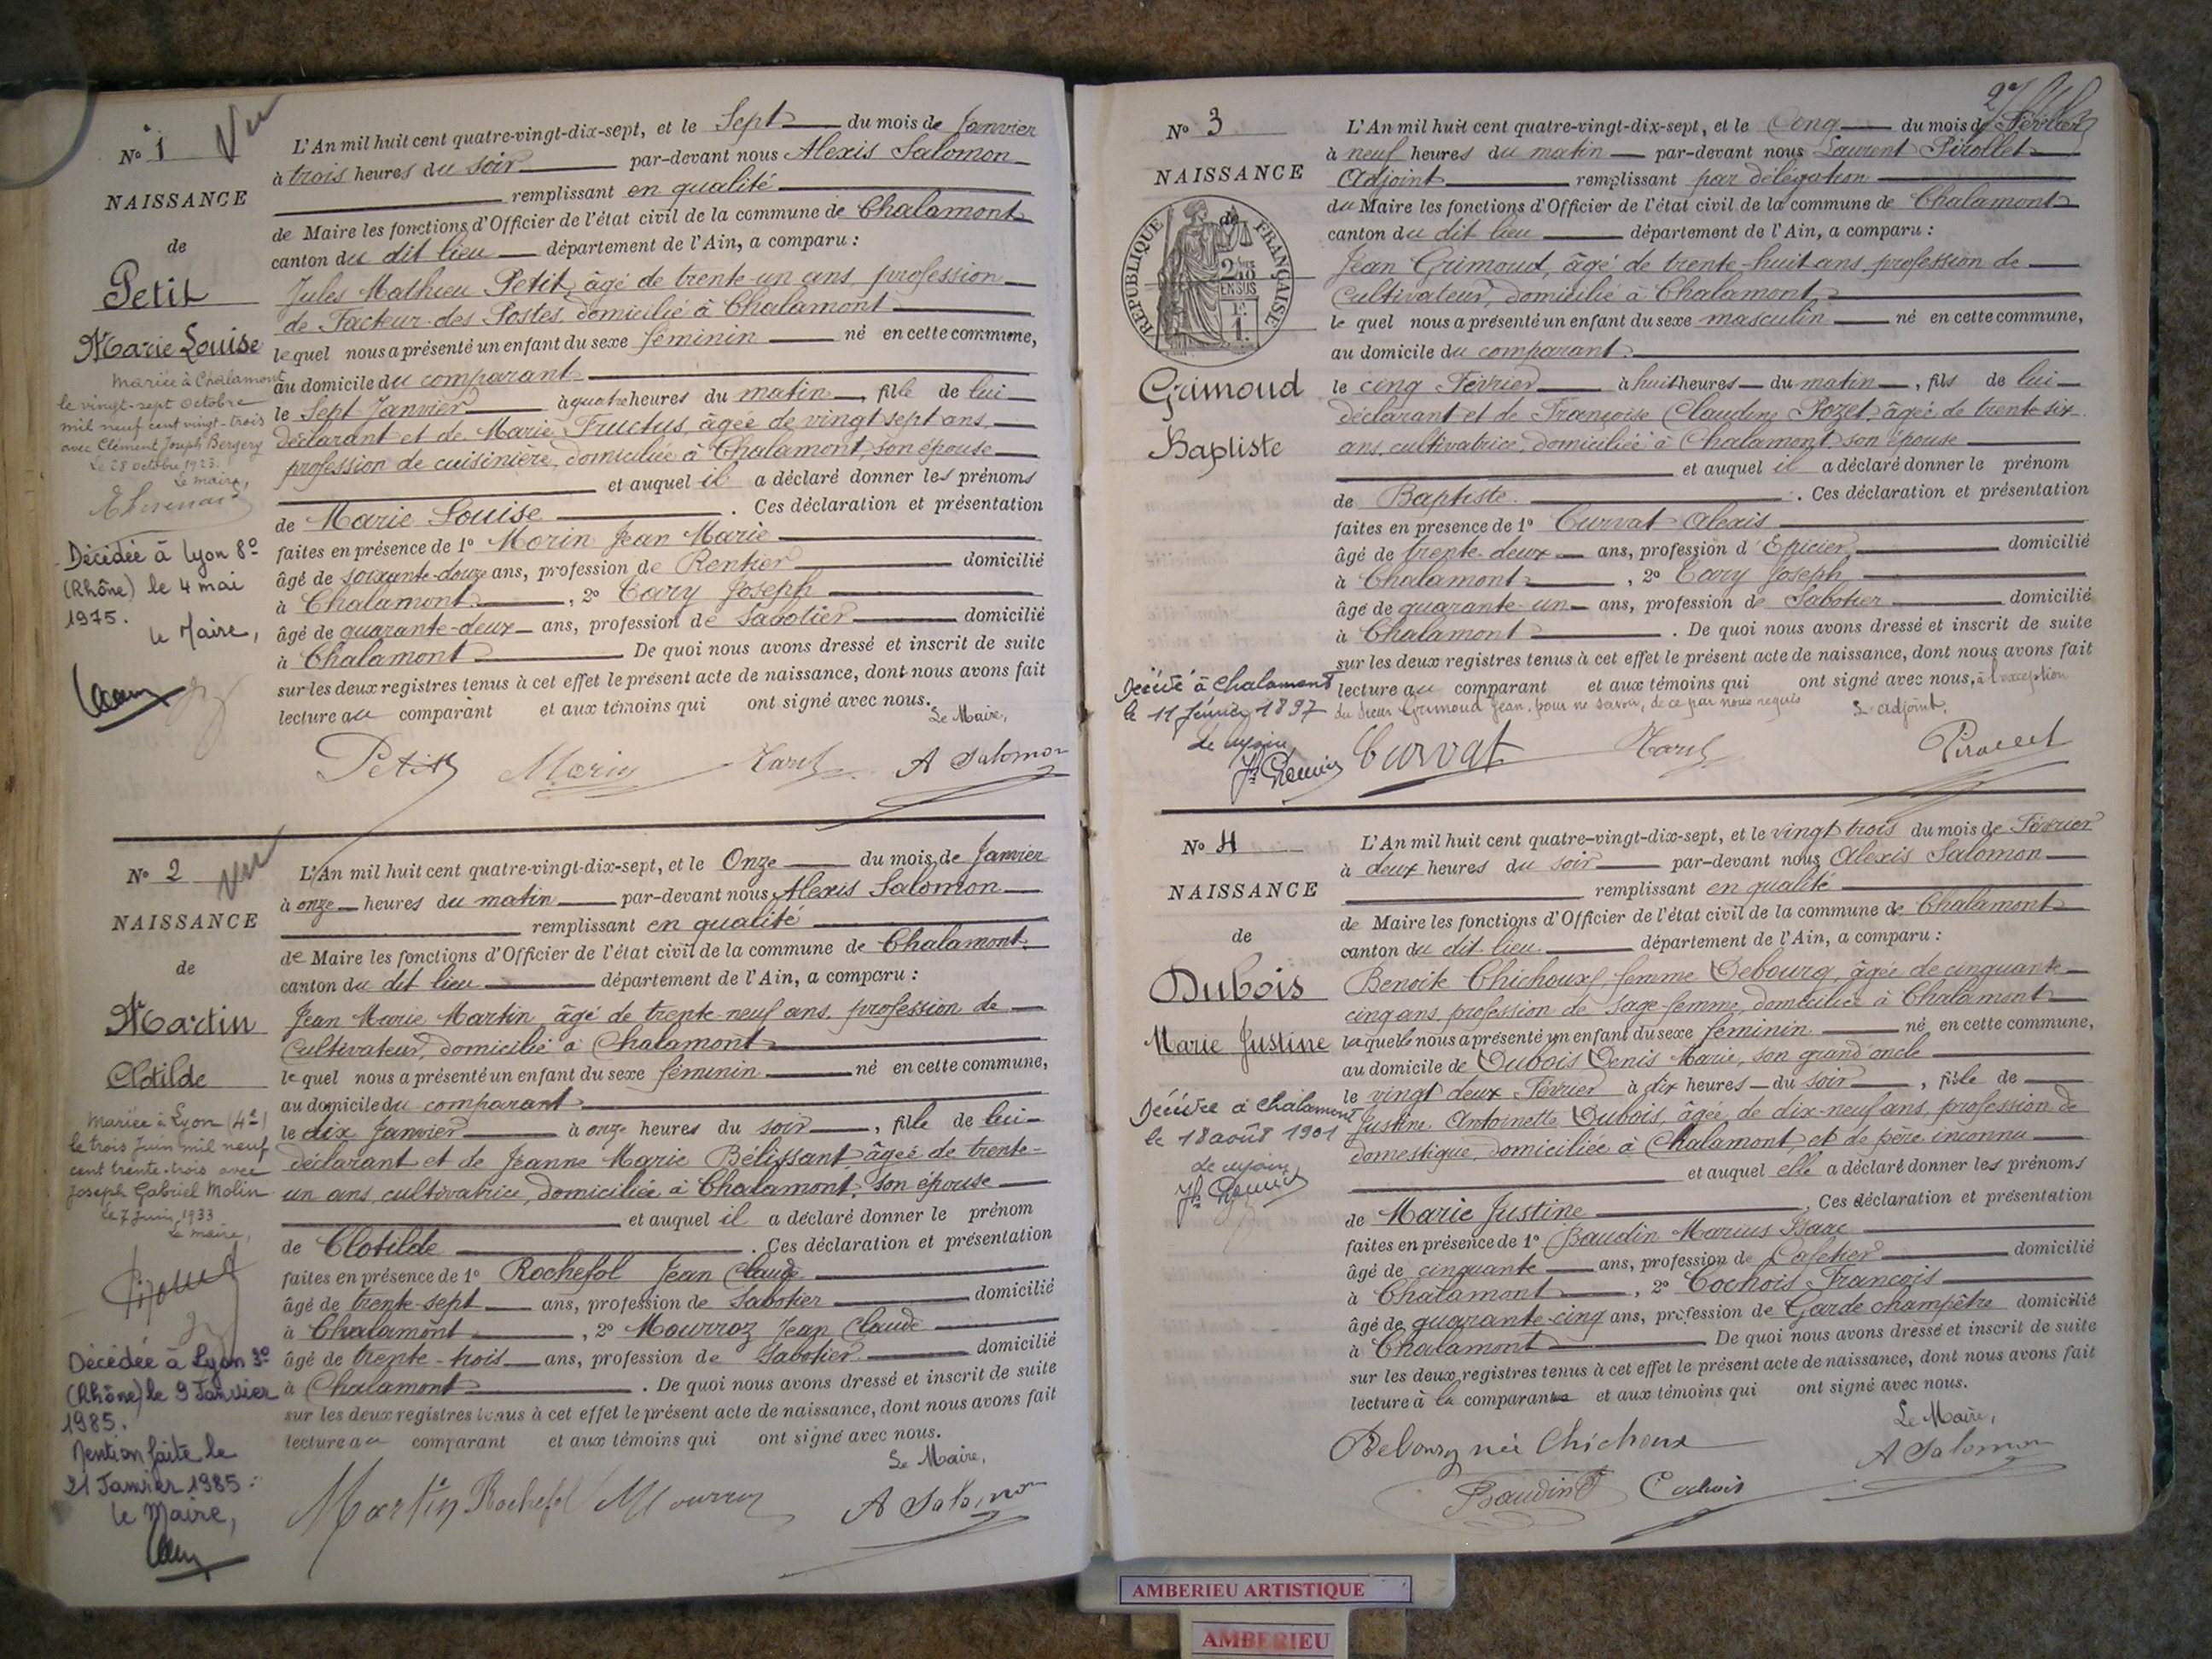 N° 1 Vu
NAISSANCE
de
Petit
Marie Louise
mariée à Chalamont
le vingt-sept octobre
mil neuf cent vingt-trois
avec Clément Joseph Bergery
Le 28 octobre 1923.
Le maire,
Décédée à Lyon 8e
(Rhône) le 4 mai
1975.
Le Maire,
L'An mil huit cent quatre-vingt-dix-sept, et le Sept du mois de Janvier
à trois heures du soir par-devant nous Alexis Salomon
remplissant en qualité
de Maire les fonctions d'Officier de l'état civil de la commune de Chalamont
canton du dit lieu département de l'Ain, a comparu :
Jules Mathieu Petit, âgé de trente-un ans profession
de Facteur des Postes, domicilié à Chalamont
lequel nous a présenté un enfant du sexe féminin né en cette commune,
au domicile du comparant
le Sept Janvier à quatre heures du matin, fille de lui
déclarant et de Marie Fructus, âgée de vingt sept ans,
profession de cuisinière, domiciliée à Chalamont, son épouse
et auquel il a déclaré donner les prénoms
de Marie Louise. Ces déclaration et présentation
faites en présence de 1° Morin Jean Marie
âgé de soixante-douze ans, profession de Rentier domicilié
à Chalamont, 2° Joseph
âgé de quarante-deux ans, profession de Sabotier domicilié
à Chalamont De quoi nous avons dressé et inscrit de suite
sur les deux registres tenus à cet effet le présent acte de naissance, dont nous avons fait
lecture au comparant et aux témoins qui ont signé avec nous.
Le Maire,
Petit Morin A Salomon
N° 2 Vu
NAISSANCE
de
Martin
Clotilde
Mariée à Lyon (4e)
le trois Juin mil neuf
cent trente-trois avec
Joseph Gabriel Molin
Le 7 Juin 1933
Le maire,
Décédée à Lyon 3e
(Rhône) le 9 Janvier
1985.
Mention faite le
21 Janvier 1985.
Le Maire,
L'An mil huit cent quatre-vingt-dix-sept, et le Onze du mois de Janvier
à onze heures du matin par-devant nous Alexis Salomon
remplissant en qualité
de Maire les fonctions d'Officier de l'état civil de la commune de Chalamont
canton du dit lieu département de l'Ain, a comparu :
Jean Marie Martin âgé de trente-neuf ans, profession de
Cultivateur, domicilié à Chalamont
lequel nous a présenté un enfant du sexe féminin né en cette commune,
au domicile du comparant
le dix Janvier à onze heures du soir, fille de lui
déclarant et de Jeanne Marie Bélissant âgée de trente-
un ans, cultivatrice, domiciliée à Chalamont, son épouse
et auquel il a déclaré donner le prénom
de Clotilde. Ces déclaration et présentation
faites en présence de 1° Rochefol Jean Claude
âgé de trente-sept ans, profession de Sabotier domicilié
à Chalamont, 2° Mourroz Jean Claude
âgé de trente-trois ans, profession de Sabotier domicilié
à Chalamont. De quoi nous avons dressé et inscrit de suite
sur les deux registres tenus à cet effet le présent acte de naissance, dont nous avons fait
lecture au comparant et aux témoins qui ont signé avec nous.
Le Maire,
Martin Rochefol Mourroz A Salomon
N° 3
NAISSANCE
de
REPUBLIQUE FRANÇAISE
Grimoud
Baptiste
Décédé à Chalamont
le 11 février 1897
L'An mil huit cent quatre-vingt-dix-sept, et le Cinq du mois de Février
à neuf heures du matin par-devant nous Laurent Pirollet
Adjoint remplissant par délégation
du Maire les fonctions d'Officier de l'état civil de la commune de Chalamont
canton du dit lieu département de l'Ain, a comparu :
Jean Grimoud, âgé de trente-huit ans, profession de
Cultivateur, domicilié à Chalamont
lequel nous a présenté un enfant du sexe masculin né en cette commune,
au domicile du comparant
le cinq Février à huit heures du matin, fils de lui
déclarant et de Françoise Claudine Rozet, âgée de trente-six
ans, cultivatrice, domiciliée à Chalamont, son épouse
et auquel il a déclaré donner le prénom
de Baptiste. Ces déclaration et présentation
faites en présence de 1° Curvat Alexis
âgé de trente-deux ans, profession d'Epicier, domicilié
à Chalamont, 2° Joseph
âgé de quarante-un ans, profession de Sabotier domicilié
à Chalamont. De quoi nous avons dressé et inscrit de suite
sur les deux registres tenus à cet effet le présent acte de naissance, dont nous avons fait
lecture au comparant et aux témoins qui ont signé avec nous, à l'exception
du sieur Grimoud Jean, pour ne savoir, de ce par nous requis
L'adjoint,
Curvat Pirollet
N° 4
NAISSANCE
de
Dubois
Marie Justine
Décédée à Chalamont
le 18 août 1901
L'An mil huit cent quatre-vingt-dix-sept, et le vingt trois du mois de Février
à deux heures du soir par-devant nous Alexis Salomon
remplissant en qualité
de Maire les fonctions d'Officier de l'état civil de la commune de Chalamont
canton du dit lieu département de l'Ain, a comparu :
Benoite Chichoux, femme Debourg, âgée de cinquante-
cinq ans, profession de sage-femme, domiciliée à Chalamont
laquelle nous a présenté un enfant du sexe féminin né en cette commune,
au domicile de Dubois Denis Marie, son grand oncle
le vingt deux Février à dix heures du soir, fille de
Justine Antoinette Dubois, âgée de dix-neuf ans, profession de
domestique, domiciliée à Chalamont, et de père inconnu
et auquel elle a déclaré donner les prénoms
de Marie Justine, Ces déclaration et présentation
faites en présence de 1° Baudin Marius Isaac
âgé de cinquante ans, profession de Cafetier domicilié
à Chalamont, 2° Cochois François
âgé de quarante-cinq ans, profession de Garde champêtre domicilié
à Chalamont De quoi nous avons dressé et inscrit de suite
sur les deux registres tenus à cet effet le présent acte de naissance, dont nous avons fait
lecture à la comparante et aux témoins qui ont signé avec nous.
Le Maire,
Debourg née Chichoux A Salomon
Baudin Cochois
AMBERIEU ARTISTIQUE
AMBERIEU